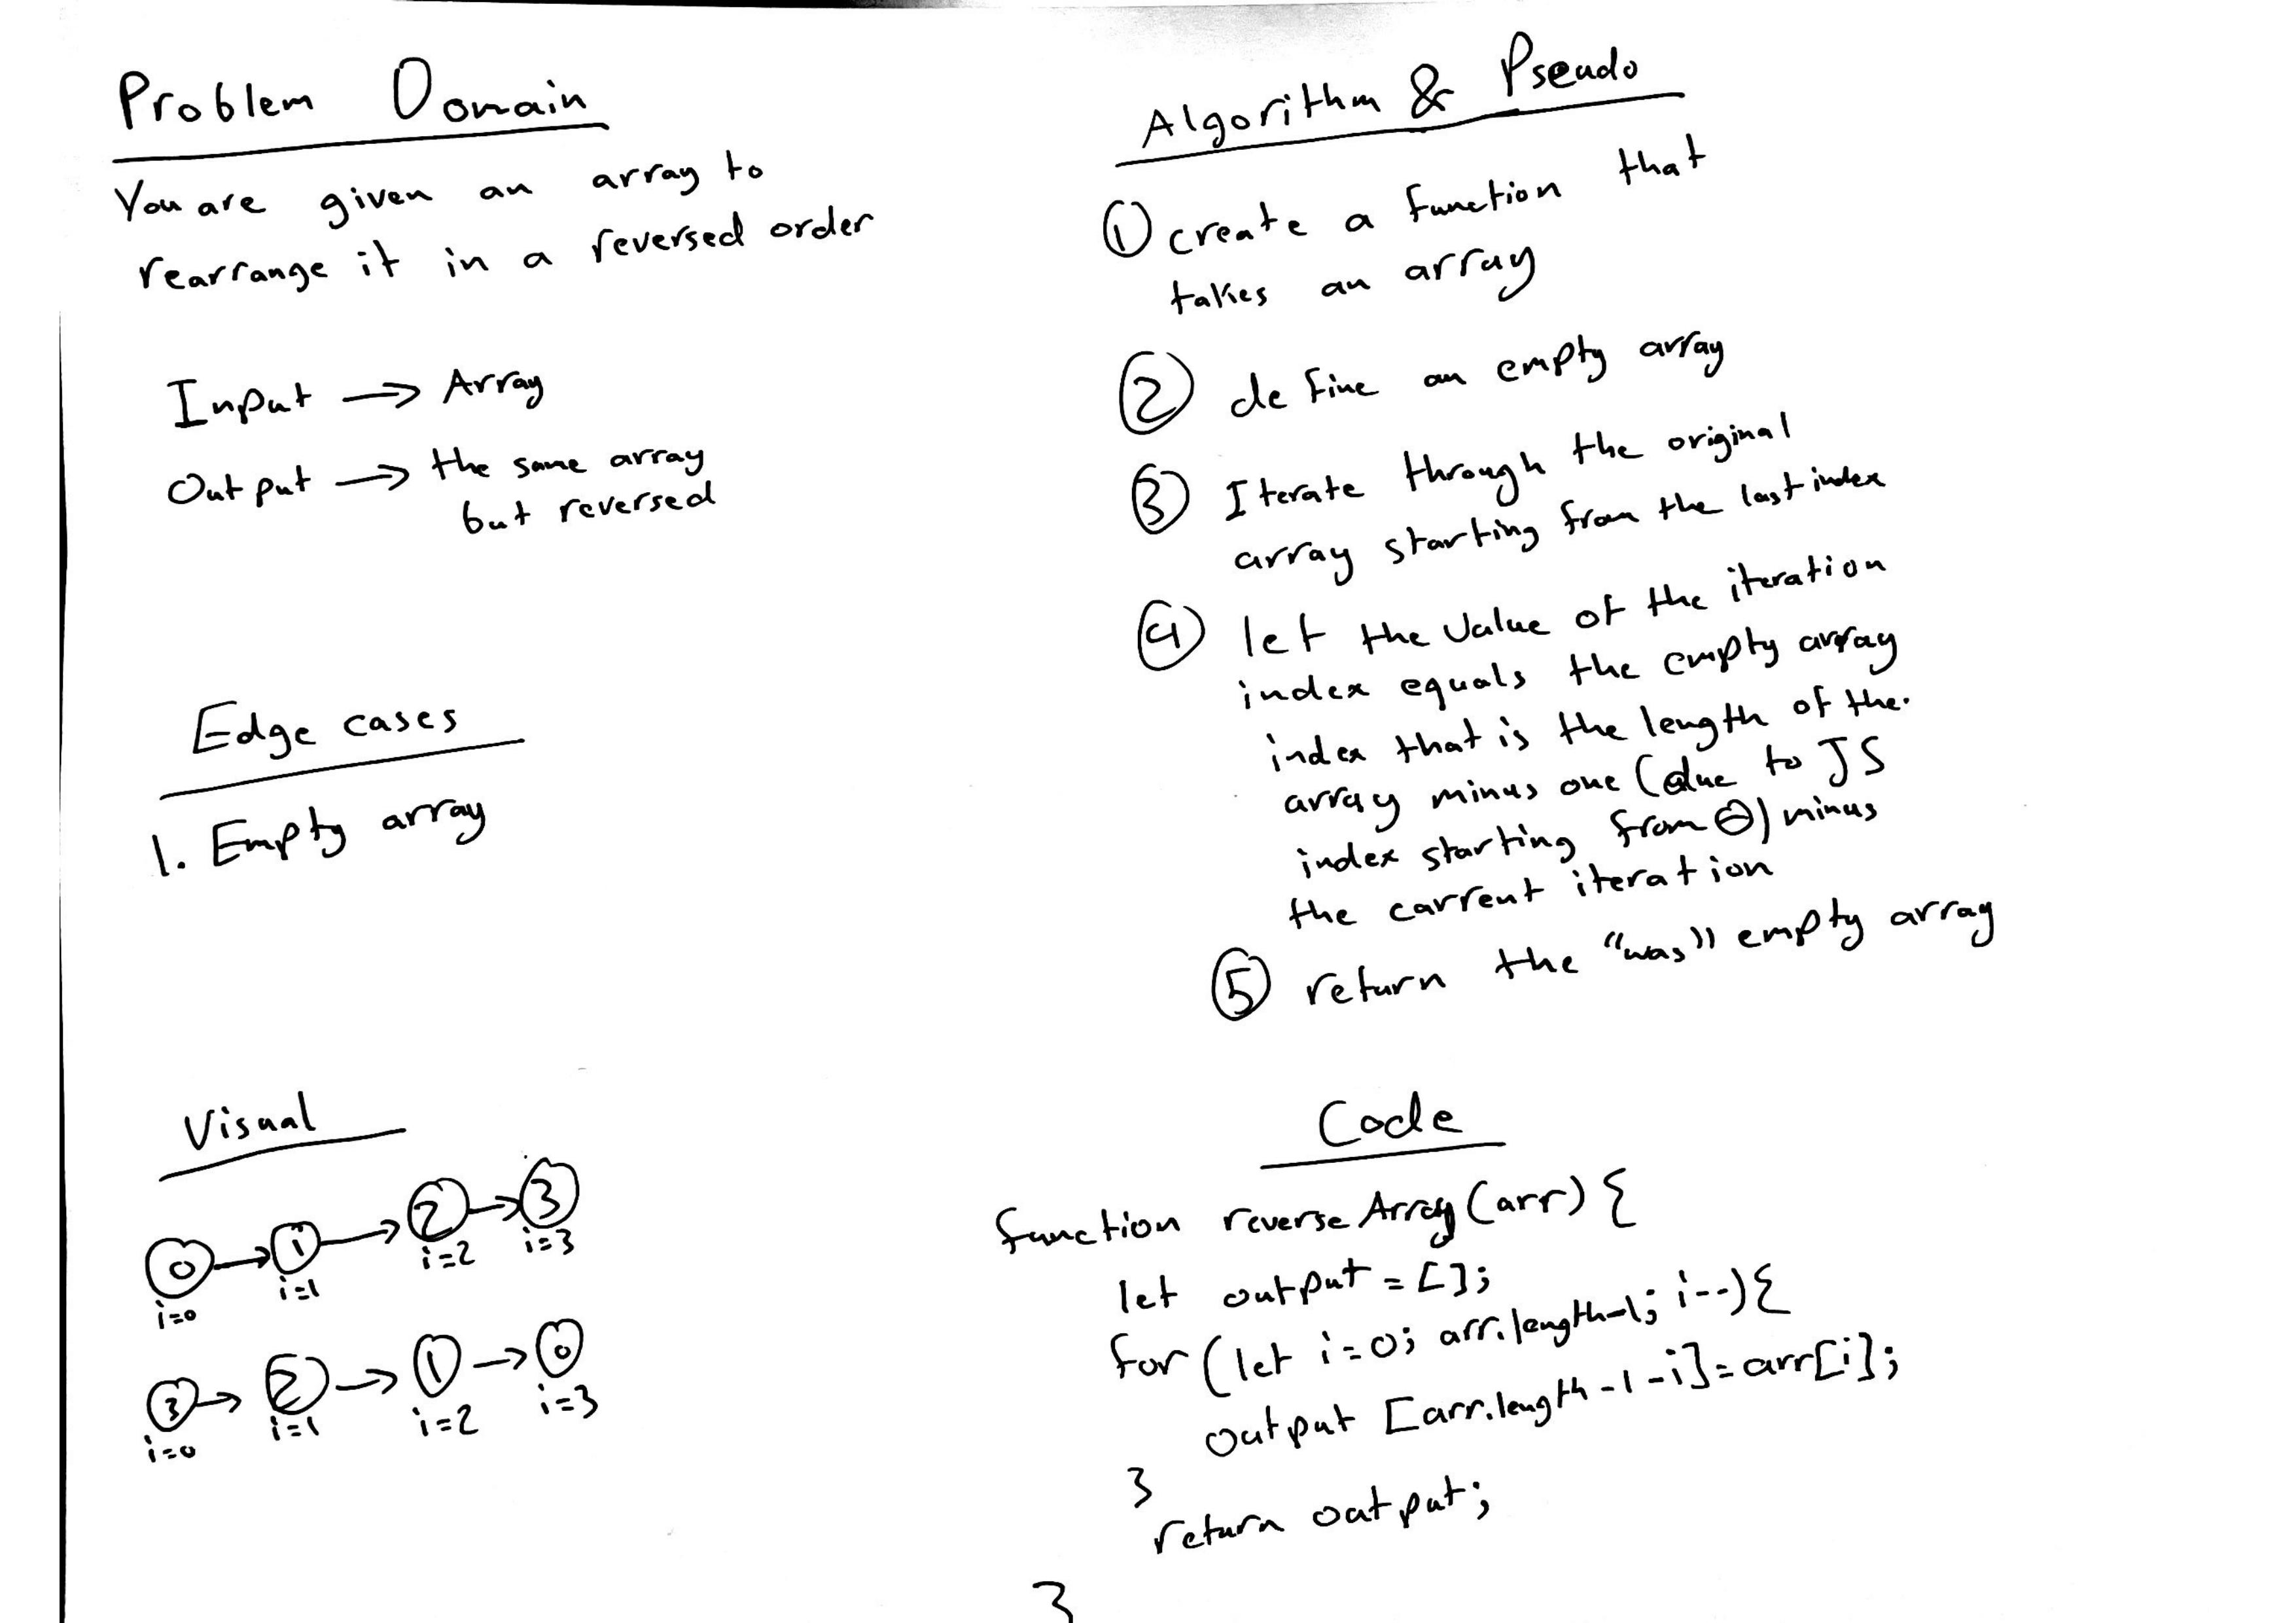 Problem Domain
You are given an array to
rearrange it in a reversed order
Input → Array
Output → the same array
but reversed
Edge cases
1. Empty array
Visual
0 → 1 → 2 → 3
i=0 i=1 i=2 i=3
3 → 2 → 1 → 0
i=0 i=1 i=2 i=3
Algorithm & Pseudo
① create a function that
takes an array
② define an empty array
③ Iterate through the original
array starting from the last index
④ let the value of the iteration
index equals the empty array
index that is the length of the
array minus one (due to JS
index starting from 0) minus
the current iteration
⑤ return the "was" empty array
Code
function reverseArray(arr) {
let output = [];
for (let i=0; arr.length-1; i--){
output [arr.length-1-i]=arr[i];
}
return output;
}